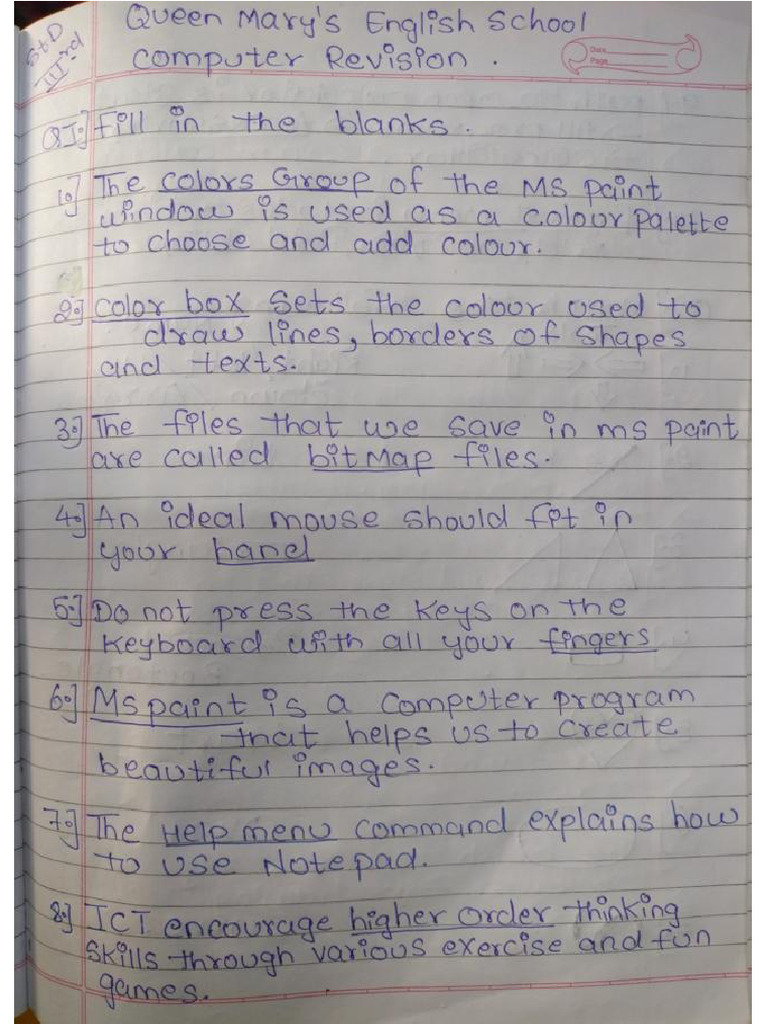 Queen Mary's English School
STD
IIIrd
Computer Revision .
Date
Page
QI:] Fill in the blanks .
1.] The colors Group of the MS paint
window is used as a colour palette
to choose and add colour.
2.] color box sets the colour used to
draw lines, borders of shapes
and texts.
3.] The files that we save in ms paint
are called bitmap files.
4.] An ideal mouse should fit in
your hand
5.] Do not press the keys on the
keyboard with all your fingers
6.] Ms paint is a computer program
that helps us to create
beautiful images.
7.] The Help menu command explains how
to use Notepad.
8.] ICT encourage higher order thinking
skills through various exercise and fun
games.